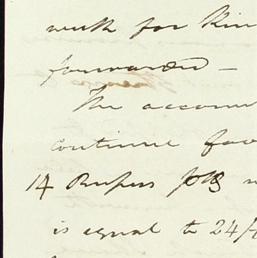 week for Kin
forwarded —
The accoun
continue fav
14 Rupees
is equal to 24/